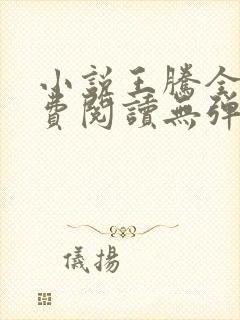 小說王騰全
費閱讀無彈
儀揚